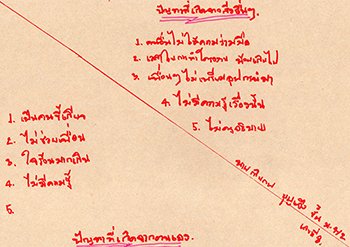 ปัญหาที่เกิดจากสิ่งอื่นๆ.
1. คนอื่นไม่ให้ความร่วมมือ
2. เวลาในการทำโครงงาน น้อยเกินไป
3. เพื่อนๆ ไม่เตรียมอุปกรณ์มา
4. ไม่มีความรู้เรื่องนั้น
5. ไม่
1. เป็นคนขี้เกียจ
2. ไม่ช่วยเพื่อน
3. ใจร้อนมากเกิน
4. ไม่มีความรู้
5.
ชั้น ม.
เลขที่
ปัญหาที่เกิดจากตนเอง.